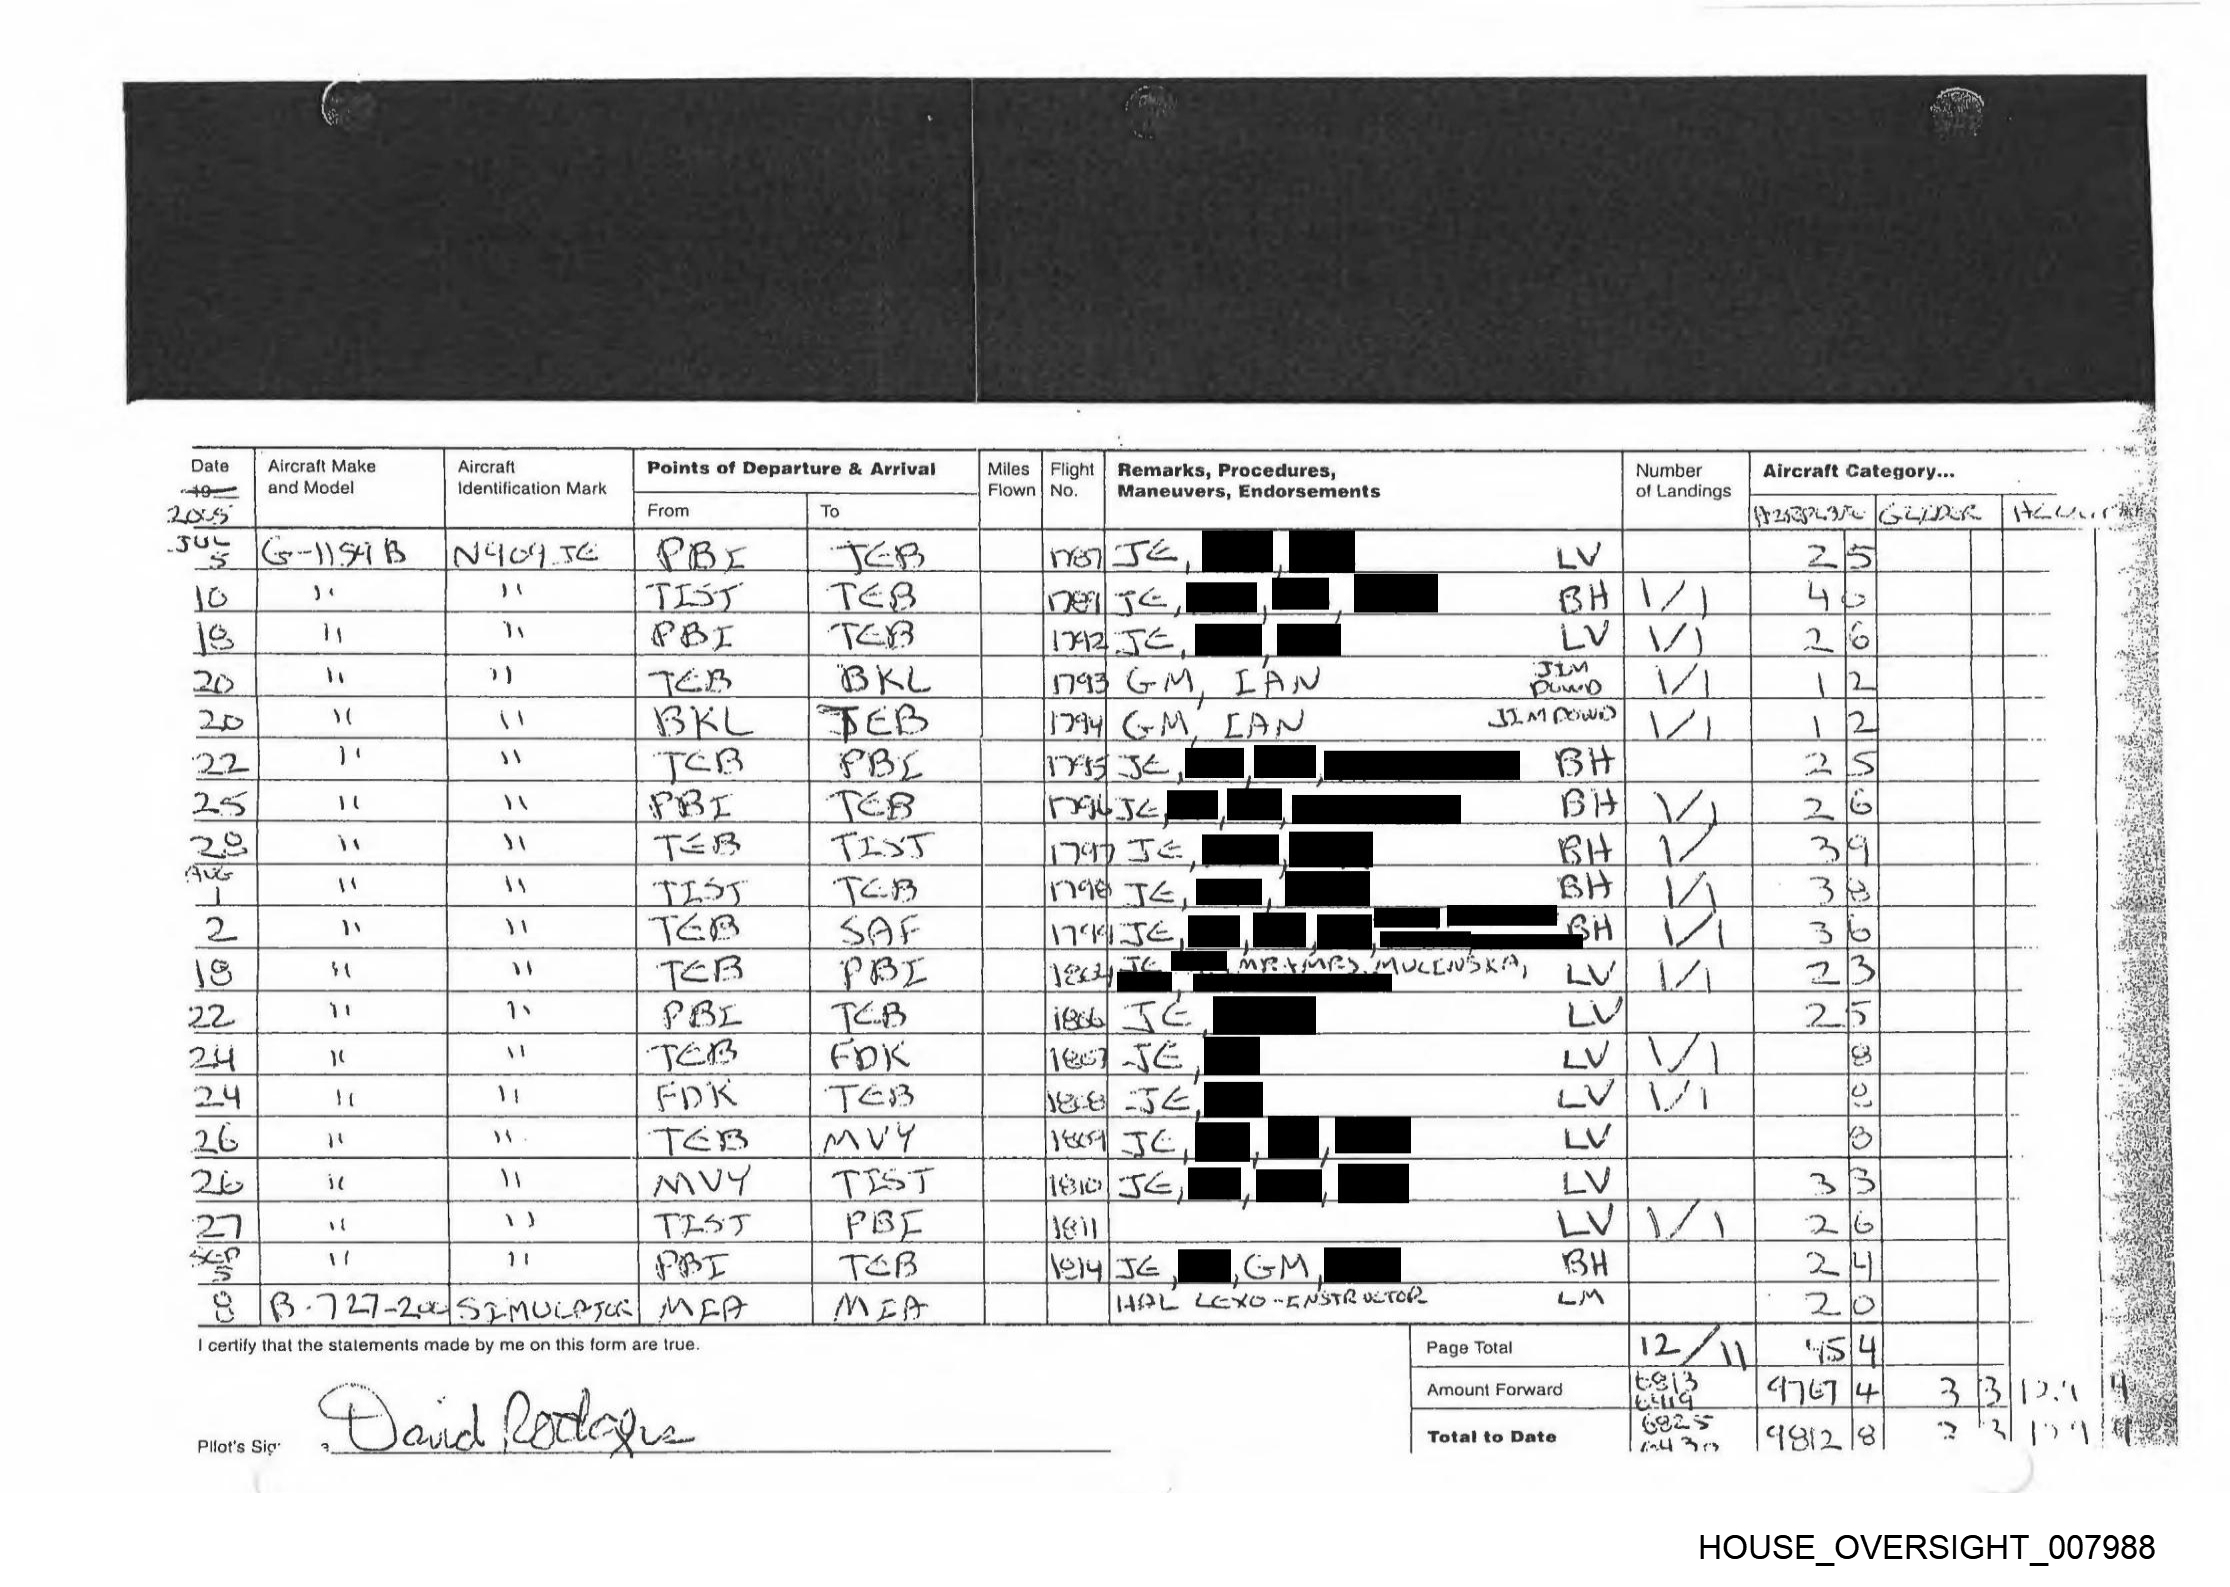 Date Aircraft Make and Model Aircraft Identification Mark Points of Departure & Arrival Miles Flown Flight No. Remarks, Procedures, Maneuvers, Endorsements Number of Landings Aircraft Category...
19 2005 From To AIRPLANE GLIDER
JUL 5 G-1159B N909JE PBI TEB 1787 JE, , LV 2 5
10 " " TIST TEB 1789 JE, , , BH 1/1 4 0
18 " " PBI TEB 1792 JE, , LV 1/1 2 6
20 " " TEB BKL 1793 GM, IAN JIM DOWD 1/1 1 2
20 " " BKL TEB 1794 GM, IAN JIM DOWD 1/1 1 2
22 " " TEB PBI 1795 JE, , , BH 2 5
25 " " PBI TEB 1796 JE, , , BH 1/1 2 6
28 " " TEB TIST 1797 JE, , BH 1/ 3 9
AUG 1 " " TIST TEB 1798 JE, , BH 1/1 3 8
2 " " TEB SAF 1799 JE, , , , BH 1/1 3 6
18 " " TEB PBI 1804 JE, , MR + MRS. MUCINSKA, , LV 1/1 2 3
22 " " PBI TEB 1806 JE, LV 2 5
24 " " TEB FDK 1807 JE, LV 1/1 8
24 " " FDK TEB 1808 JE, LV 1/1 8
26 " " TEB MVY 1809 JE, , , LV 8
26 " " MVY TIST 1810 JE, , , LV 3 3
27 " " TIST PBI 1811 LV 1/1 2 6
SEP 5 " " PBI TEB 1814 JE, , GM, BH 2 4
8 B-727-200 SIMULATOR MIA MIA HAL LEXO-INSTRUCTOR LM 2 0
I certify that the statements made by me on this form are true. Page Total 12/11 45 4
Amount Forward 6813 6419 9767 4 3 3
Pilot's Sig David Rodgers Total to Date 6825 6430 9812 8 3 3
HOUSE_OVERSIGHT_007988